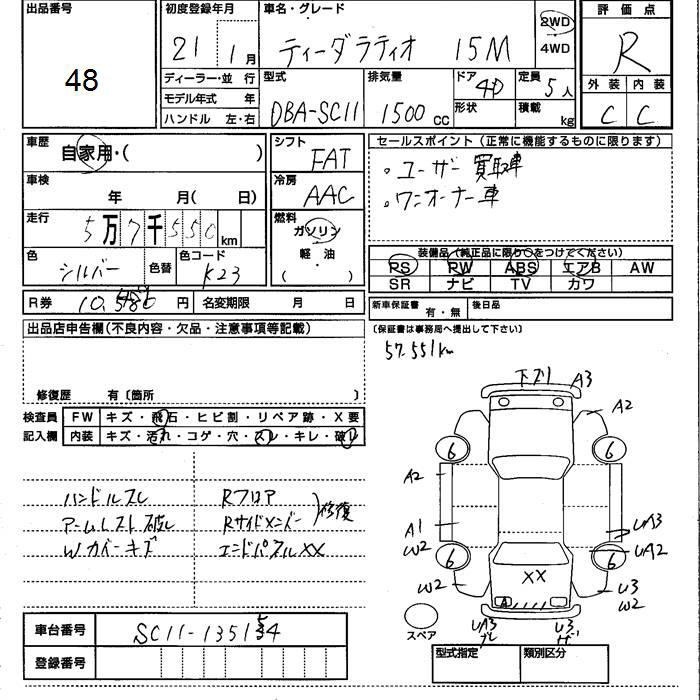 出品番号
48
初度登録年月
21 年 1月
車名・グレード
ティーダラティオ 15M
2WD
4WD
評価点
R
ディーラー・並 行
モデル年式 年
ハンドル 左・右
型式
DBA-SC11
排気量
1500 cc
ドア
4D
形状
定員
5人
積載
kg
外装 内装
C C
車歴
自家用・( )
車検
年 月( 日)
走行
5万7千550 km
色
シルバー
色替
色コード
K23
シフト
FAT
冷房
AAC
燃料
ガソリン
軽・油
( )
セールスポイント(正常に機能するものに限ります)
。ユーザー買取車
。ワンオーナー車
装備品(純正品に限り○をつけてください)
PS PW ABS エアB AW
SR ナビ TV カワ
R券 円 名変期限 月 日
新車保証書 有・無 後日品
(保証書は事務局へ提出して下さい)
出品店申告欄(不良内容・欠品・注意事項等記載)
57.551km
修復歴 有〔箇所 〕
検査員
記入欄
FW キズ・飛石・ヒビ割・リペア跡・X要
内装 キズ・汚れ・コゲ・穴・スレ・キレ・破レ
ハンドルスレ
アームレスト破レ
Wカバーキズ
Rフロア
Rサイドメンバー
エンドパネルXX
修復
下ズリ A3
A2
6 6
A2
A1
W2
UA3
UA2
6 6
XX
W2
A
U3
W2
スペア
UA3
U3
車台番号
登録番号
型式指定 類別区分